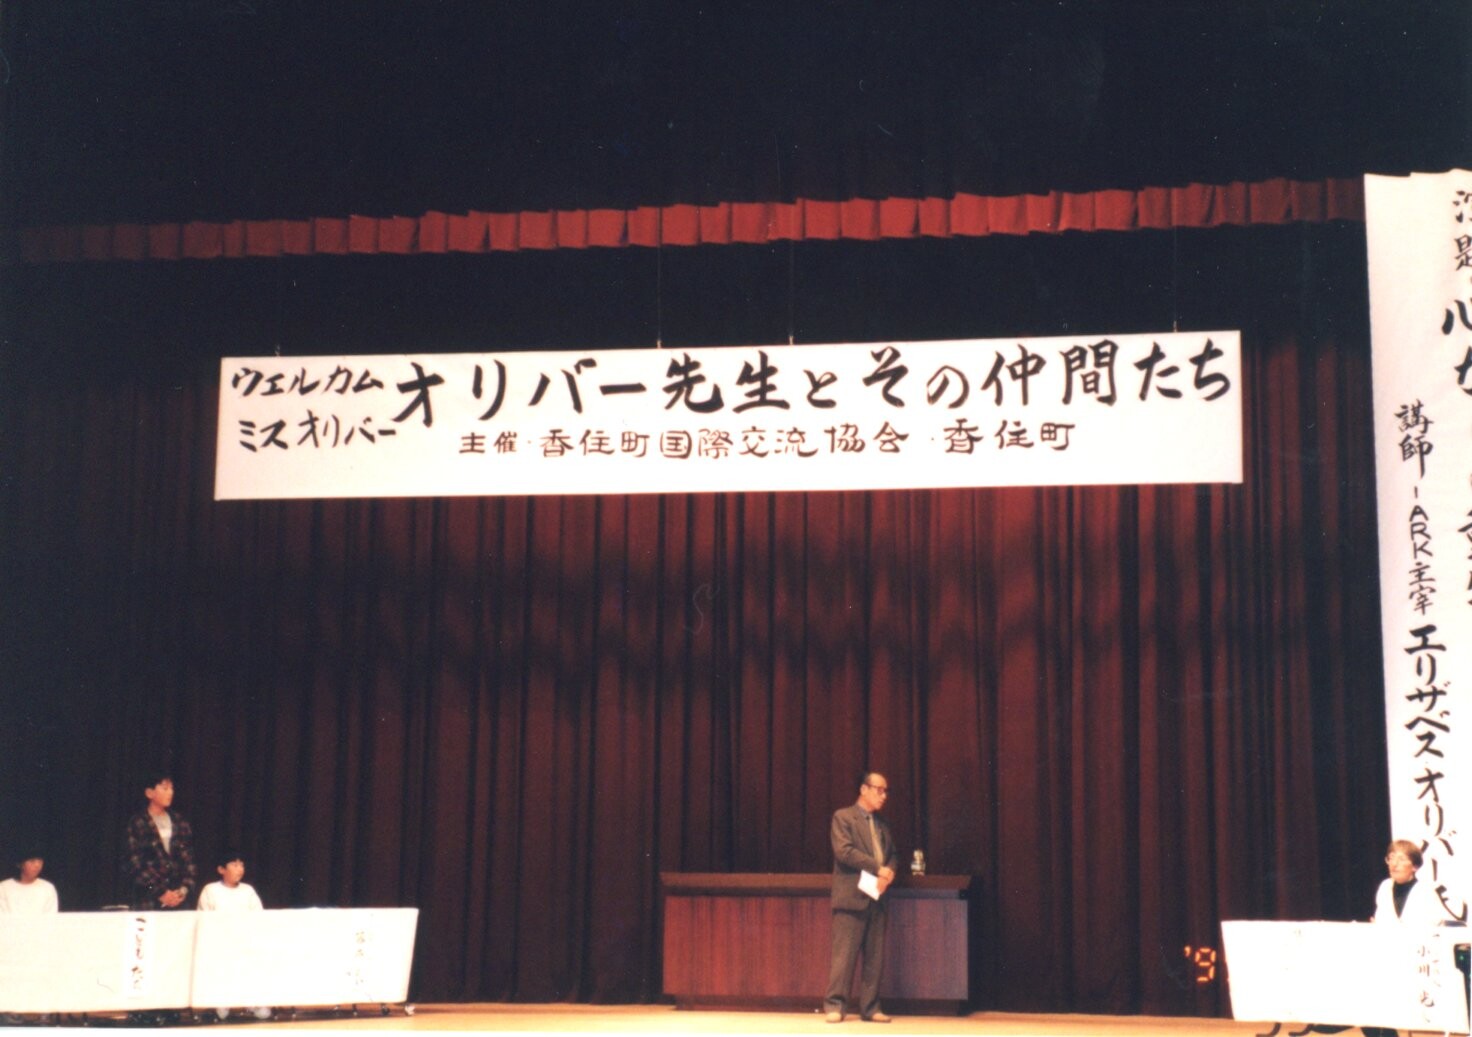 ウェルカム
ミス オリバー
オリバー先生とその仲間たち
主催・香住町国際交流協会・香住町
演題
心
講師
ARK主宰 エリザベス・オリバー氏
こどもたち
小川
'9